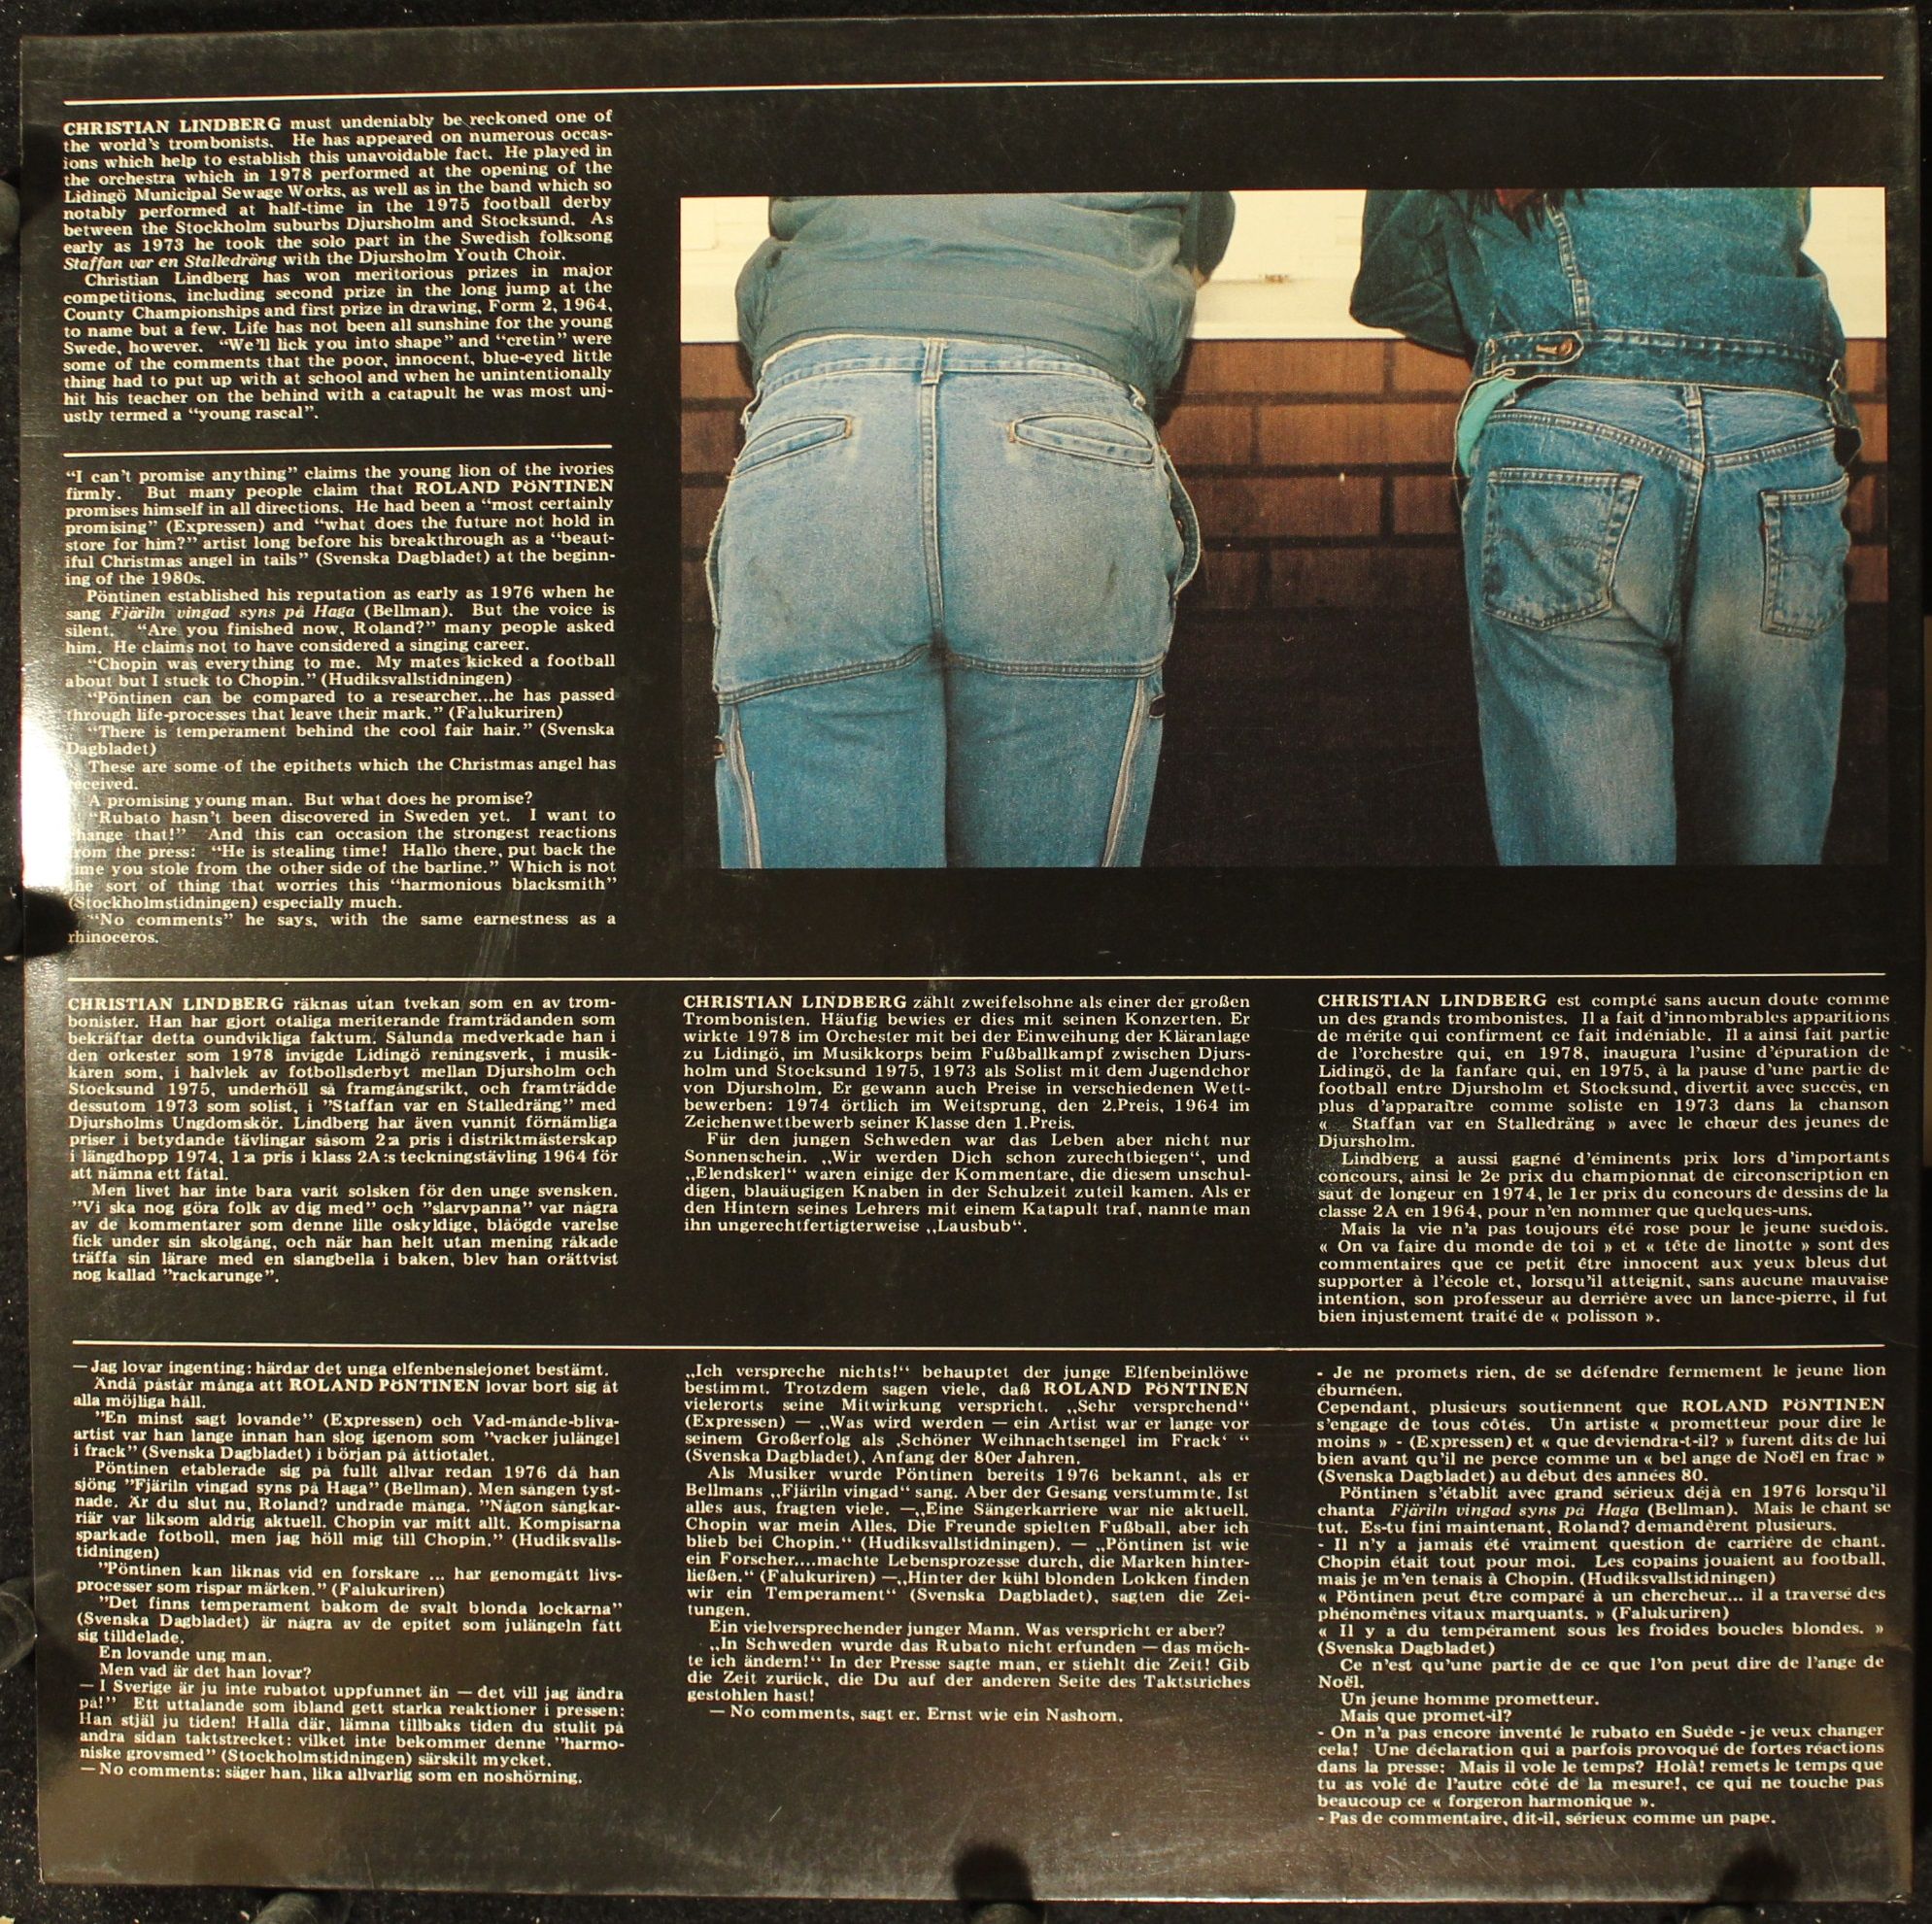 CHRISTIAN LINDBERG must undeniably be reckoned one of
the world's trombonists. He has appeared on numerous occas-
ions which help to establish this unavoidable fact. He played in
the orchestra which in 1978 performed at the opening of the
Lidingö Municipal Sewage Works, as well as in the band which so
notably performed at half-time in the 1975 football derby
between the Stockholm suburbs Djursholm and Stocksund. As
early as 1973 he took the solo part in the Swedish folksong
Staffan var en Stalledräng with the Djursholm Youth Choir.
Christian Lindberg has won meritorious prizes in major
competitions, including second prize in the long jump at the
County Championships and first prize in drawing, Form 2, 1964,
to name but a few. Life has not been all sunshine for the young
Swede, however. "We'll lick you into shape" and "cretin" were
some of the comments that the poor, innocent, blue-eyed little
thing had to put up with at school and when he unintentionally
hit his teacher on the behind with a catapult he was most unj-
ustly termed a "young rascal".
"I can't promise anything" claims the young lion of the ivories
firmly. But many people claim that ROLAND PÖNTINEN
promises himself in all directions. He had been a "most certainly
promising" (Expressen) and "what does the future not hold in
store for him?" artist long before his breakthrough as a "beaut-
iful Christmas angel in tails" (Svenska Dagbladet) at the beginn-
ing of the 1980s.
Pöntinen established his reputation as early as 1976 when he
sang Fjäriln vingad syns på Haga (Bellman). But the voice is
silent. "Are you finished now, Roland?" many people asked
him. He claims not to have considered a singing career.
"Chopin was everything to me. My mates kicked a football
about but I stuck to Chopin." (Hudiksvallstidningen)
"Pöntinen can be compared to a researcher...he has passed
through life-processes that leave their mark." (Falukuriren)
"There is temperament behind the cool fair hair." (Svenska
Dagbladet)
These are some of the epithets which the Christmas angel has
received.
A promising young man. But what does he promise?
"Rubato hasn't been discovered in Sweden yet. I want to
change that!" And this can occasion the strongest reactions
from the press: "He is stealing time! Hallo there, put back the
time you stole from the other side of the barline." Which is not
the sort of thing that worries this "harmonious blacksmith"
(Stockholmstidningen) especially much.
"No comments" he says, with the same earnestness as a
rhinoceros.
CHRISTIAN LINDBERG räknas utan tvekan som en av trom-
bonister. Han har gjort otaliga meriterande framträdanden som
bekräftar detta oundvikliga faktum. Sålunda medverkade han i
den orkester som 1978 invigde Lidingö reningsverk, i musik-
kåren som, i halvlek av fotbollsderbyt mellan Djursholm och
Stocksund 1975, underhöll så framgångsrikt, och framträdde
dessutom 1973 som solist, i "Staffan var en Stalledräng" med
Djursholms Ungdomskör. Lindberg har även vunnit förnämliga
priser i betydande tävlingar såsom 2:a pris i distriktmästerskap
i längdhopp 1974, 1:a pris i klass 2A:s teckningstävling 1964 för
att nämna ett fåtal.
Men livet har inte bara varit solsken för den unge svensken.
"Vi ska nog göra folk av dig med" och "slarvpanna" var några
av de kommentarer som denne lille oskyldige, blåögde varelse
fick under sin skolgång, och när han helt utan mening råkade
träffa sin lärare med en slangbella i baken, blev han orättvist
nog kallad "rackarunge".
CHRISTIAN LINDBERG zählt zweifelsohne als einer der großen
Trombonisten. Häufig bewies er dies mit seinen Konzerten. Er
wirkte 1978 im Orchester mit bei der Einweihung der Kläranlage
zu Lidingö, im Musikkorps beim Fußballkampf zwischen Djurs-
holm und Stocksund 1975, 1973 als Solist mit dem Jugendchor
von Djursholm. Er gewann auch Preise in verschiedenen Wett-
bewerben: 1974 örtlich im Weitsprung, den 2.Preis, 1964 im
Zeichenwettbewerb seiner Klasse den 1.Preis.
Für den jungen Schweden war das Leben aber nicht nur
Sonnenschein. „Wir werden Dich schon zurechtbiegen", und
„Elendskerl" waren einige der Kommentare, die diesem unschul-
digen, blauäugigen Knaben in der Schulzeit zuteil kamen. Als er
den Hintern seines Lehrers mit einem Katapult traf, nannte man
ihn ungerechtfertigterweise „Lausbub".
CHRISTIAN LINDBERG est compté sans aucun doute comme
un des grands trombonistes. Il a fait d'innombrables apparitions
de mérite qui confirment ce fait indéniable. Il a ainsi fait partie
de l'orchestre qui, en 1978, inaugura l'usine d'épuration de
Lidingö, de la fanfare qui, en 1975, à la pause d'une partie de
football entre Djursholm et Stocksund, divertit avec succès, en
plus d'apparaître comme soliste en 1973 dans la chanson
« Staffan var en Stalledräng » avec le chœur des jeunes de
Djursholm.
Lindberg a aussi gagné d'éminents prix lors d'importants
concours, ainsi le 2e prix du championnat de circonscription en
saut de longeur en 1974, le 1er prix du concours de dessins de la
classe 2A en 1964, pour n'en nommer que quelques-uns.
Mais la vie n'a pas toujours été rose pour le jeune suédois.
« On va faire du monde de toi » et « tête de linotte » sont des
commentaires que ce petit être innocent aux yeux bleus dut
supporter à l'école et, lorsqu'il atteignit, sans aucune mauvaise
intention, son professeur au derrière avec un lance-pierre, il fut
bien injustement traité de « polisson ».
— Jag lovar ingenting: härdar det unga elfenbenslejonet bestämt.
Ändå påstår många att ROLAND PÖNTINEN lovar bort sig åt
alla möjliga håll.
"En minst sagt lovande" (Expressen) och Vad-månde-bliva-
artist var han lange innan han slog igenom som "vacker julängel
i frack" (Svenska Dagbladet) i början på åttiotalet.
Pöntinen etablerade sig på fullt allvar redan 1976 då han
sjöng "Fjäriln vingad syns på Haga" (Bellman). Men sången tyst-
nade. Är du slut nu, Roland? undrade många. "Någon sångkar-
riär var liksom aldrig aktuell. Chopin var mitt allt. Kompisarna
sparkade fotboll, men jag höll mig till Chopin." (Hudiksvalls-
tidningen)
"Pöntinen kan liknas vid en forskare ... har genomgått livs-
processer som rispar märken." (Falukuriren)
"Det finns temperament bakom de svalt blonda lockarna"
(Svenska Dagbladet) är några av de epitet som julängeln fått
sig tilldelade.
En lovande ung man.
Men vad är det han lovar?
— I Sverige är ju inte rubatot uppfunnet än — det vill jag ändra
på!" Ett uttalande som ibland gett starka reaktioner i pressen:
Han stjäl ju tiden! Hallå där, lämna tillbaks tiden du stulit på
andra sidan taktstrecket: vilket inte bekommer denne "harmo-
niske grovsmed" (Stockholmstidningen) särskilt mycket.
— No comments: säger han, lika allvarlig som en noshörning.
„Ich verspreche nichts!" behauptet der junge Elfenbeinlöwe
bestimmt. Trotzdem sagen viele, daß ROLAND PÖNTINEN
vielerorts seine Mitwirkung verspricht. „Sehr versprchend"
(Expressen) — „Was wird werden — ein Artist war er lange vor
seinem Großerfolg als ‚Schöner Weihnachtsengel im Frack' "
(Svenska Dagbladet), Anfang der 80er Jahren.
Als Musiker wurde Pöntinen bereits 1976 bekannt, als er
Bellmans „Fjäriln vingad" sang. Aber der Gesang verstummte. Ist
alles aus, fragten viele. —„Eine Sängerkarriere war nie aktuell.
Chopin war mein Alles. Die Freunde spielten Fußball, aber ich
blieb bei Chopin." (Hudiksvallstidningen). — „Pöntinen ist wie
ein Forscher....machte Lebensprozesse durch, die Marken hinter-
ließen." (Falukuriren) —„Hinter der kühl blonden Lokken finden
wir ein Temperament" (Svenska Dagbladet), sagten die Zei-
tungen.
Ein vielversprechender junger Mann. Was verspricht er aber?
„In Schweden wurde das Rubato nicht erfunden — das möch-
te ich ändern!" In der Presse sagte man, er stiehlt die Zeit! Gib
die Zeit zurück, die Du auf der anderen Seite des Taktstriches
gestohlen hast!
— No comments, sagt er. Ernst wie ein Nashorn.
- Je ne promets rien, de se défendre fermement le jeune lion
éburnéen.
Cependant, plusieurs soutiennent que ROLAND PÖNTINEN
s'engage de tous côtés. Un artiste « prometteur pour dire le
moins » - (Expressen) et « que deviendra-t-il? » furent dits de lui
bien avant qu'il ne perce comme un « bel ange de Noël en frac »
(Svenska Dagbladet) au début des années 80.
Pöntinen s'établit avec grand sérieux déjà en 1976 lorsqu'il
chanta Fjäriln vingad syns på Haga (Bellman). Mais le chant se
tut. Es-tu fini maintenant, Roland? demandèrent plusieurs.
- Il n'y a jamais été vraiment question de carrière de chant.
Chopin était tout pour moi. Les copains jouaient au football,
mais je m'en tenais à Chopin. (Hudiksvallstidningen)
« Pöntinen peut être comparé à un chercheur... il a traversé des
phénomènes vitaux marquants. » (Falukuriren)
« Il y a du tempérament sous les froides boucles blondes. »
(Svenska Dagbladet)
Ce n'est qu'une partie de ce que l'on peut dire de l'ange de
Noël.
Un jeune homme prometteur.
Mais que promet-il?
- On n'a pas encore inventé le rubato en Suède - je veux changer
cela! Une déclaration qui a parfois provoqué de fortes réactions
dans la presse: Mais il vole le temps? Holà! remets le temps que
tu as volé de l'autre côté de la mesure!, ce qui ne touche pas
beaucoup ce « forgeron harmonique ».
- Pas de commentaire, dit-il, sérieux comme un pape.